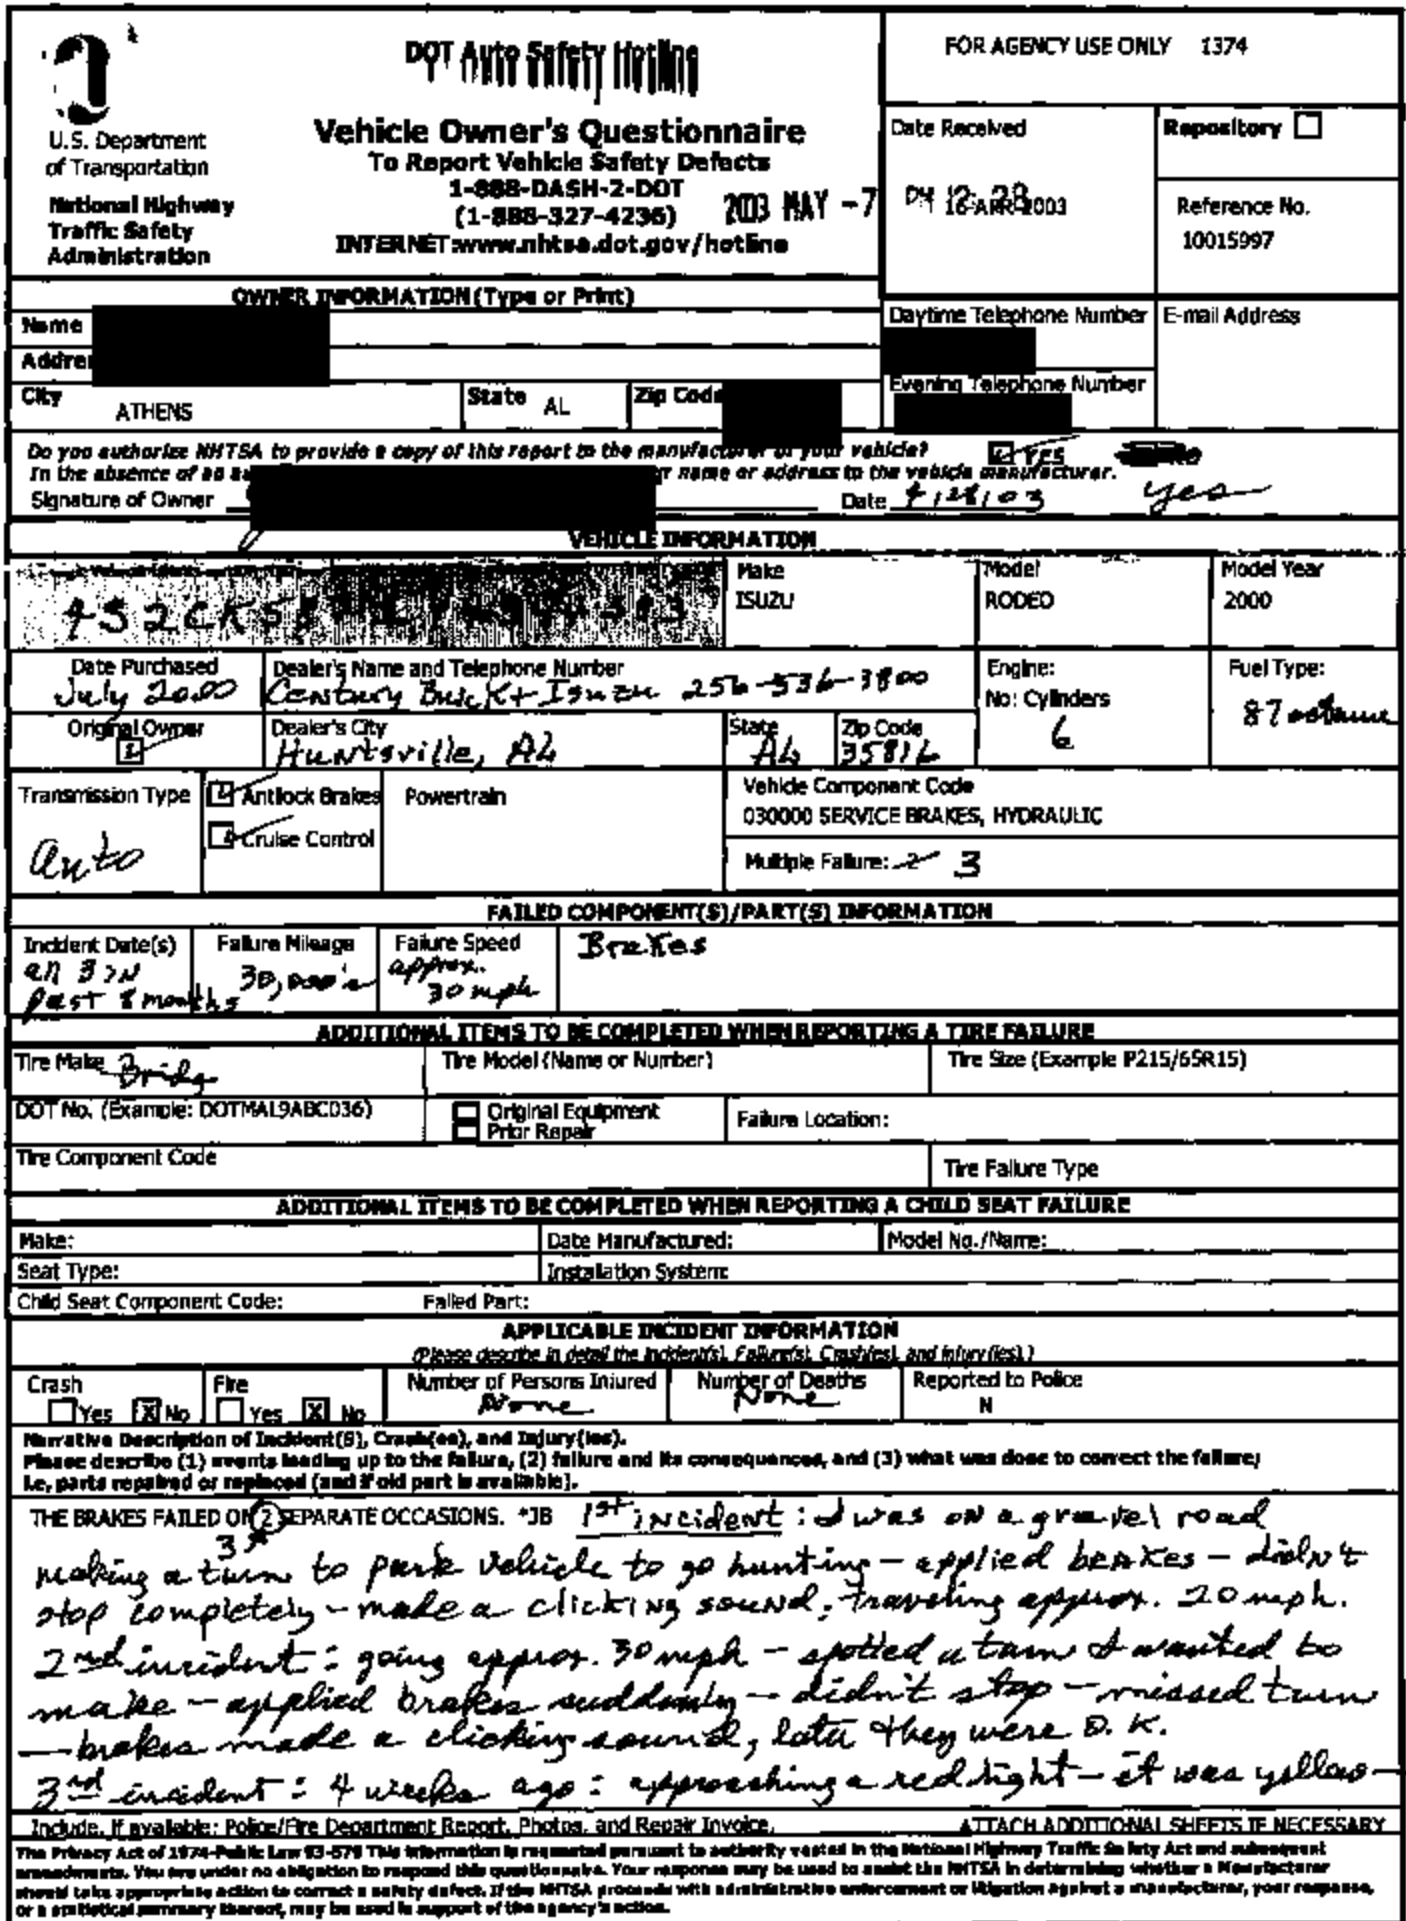 DOT Auto Safety Hotline
FOR AGENCY USE ONLY 1374
U.S. Department
of Transportation
National Highway
Traffic Safety
Administration
Vehicle Owner's Questionnaire
To Report Vehicle Safety Defects
1-888-DASH-2-DOT
(1-888-327-4236)
INTERNET:www.nhtsa.dot.gov/hotline
2003 MAY -7 PM 12:28
Date Received
16-APR-2003
Repository
Reference No.
10015997
OWNER INFORMATION (Type or Print)
Name
Daytime Telephone Number
E-mail Address
City ATHENS
State AL
Zip Code
Evening Telephone Number
Do you authorize NHTSA to provide a copy of this report to the manufacturer of your vehicle? YES NO
In the absence of an name or address to the vehicle manufacturer. yes
Signature of Owner Date 4/28/03
VEHICLE INFORMATION
Make
ISUZU
Model
RODEO
Model Year
2000
Date Purchased
July 2000
Dealer's Name and Telephone Number
Century Buick + Isuzu 256-536-3800
Engine:
No: Cylinders
6
Fuel Type:
87 octane
Original Owner
Dealer's City
Huntsville, AL
State
AL
Zip Code
35816
Transmission Type
Auto
Antilock Brakes
Cruise Control
Powertrain
Vehicle Component Code
030000 SERVICE BRAKES, HYDRAULIC
Multiple Failure: 2 3
FAILED COMPONENT(S)/PART(S) INFORMATION
Incident Date(s)
all 3 in
past 8 months
Failure Mileage
30,000's
Failure Speed
approx.
30 mph
Brakes
ADDITIONAL ITEMS TO BE COMPLETED WHEN REPORTING A TIRE FAILURE
Tire Make Bridg
Tire Model (Name or Number)
Tire Size (Example P215/65R15)
DOT No. (Example: DOTMAL9ABC036)
Original Equipment
Prior Repair
Failure Location:
Tire Component Code
Tire Failure Type
ADDITIONAL ITEMS TO BE COMPLETED WHEN REPORTING A CHILD SEAT FAILURE
Make:
Date Manufactured:
Model No./Name:
Seat Type:
Installation System:
Child Seat Component Code:
Failed Part:
APPLICABLE INCIDENT INFORMATION
(Please describe in detail the Incident(s), Failure(s), Crash(es), and injury(ies).)
Crash
Yes X No
Fire
Yes X No
Number of Persons Injured
None
Number of Deaths
None
Reported to Police
N
Narrative Description of Incident(s), Crash(es), and Injury(ies).
Please describe (1) events leading up to the failure, (2) failure and its consequences, and (3) what was done to correct the failure;
i.e, parts repaired or replaced (and if old part is available).
THE BRAKES FAILED ON 2 SEPARATE OCCASIONS. *JB 1st incident: I was on a gravel road
3
making a turn to park vehicle to go hunting – applied brakes – didn't
stop completely – made a clicking sound. traveling approx. 20 mph.
2nd incident: going approx. 30 mph – spotted a turn I wanted to
make – applied brakes suddenly – didn't stop – missed turn
– brakes made a clicking sound, later they were O.K.
3rd incident: 4 weeks ago: approaching a red light – it was yellow –
Include, if available: Police/Fire Department Report, Photos, and Repair Invoice.
ATTACH ADDITIONAL SHEETS IF NECESSARY
The Privacy Act of 1974-Public Law 93-579 This information is requested pursuant to authority vested in the National Highway Traffic Safety Act and subsequent
amendments. You are under no obligation to respond this questionnaire. Your response may be used to assist the NHTSA in determining whether a Manufacturer
should take appropriate action to correct a safety defect. If the NHTSA proceeds with administrative enforcement or litigation against a manufacturer, your response,
or a statistical summary thereof, may be used in support of the agency's action.